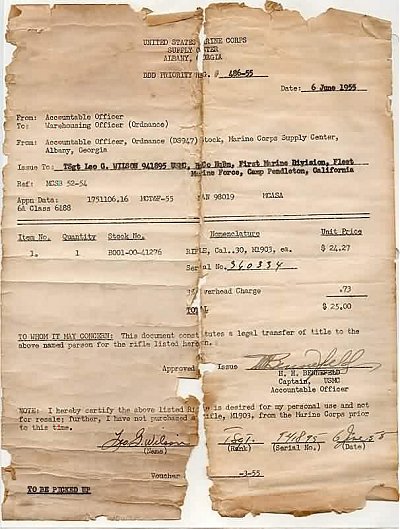 UNITED STATES MARINE CORPS
SUPPLY CENTER
ALBANY, GEORGIA
DDD PRIORITY REG. # 486-55
Date: 6 June 1955
From: Accountable Officer
To: Warehousing Officer (Ordnance)
From: Accountable Officer, Ordnance (DS947) Stock, Marine Corps Supply Center,
Albany, Georgia
Issue To: TSgt Leo G. WILSON 941895 USMC, H&S Co First Marine Division, Fleet
Marine Force, Camp Pendleton, California
Ref: MCSB 52-54
Appn Data: 1751106.16 MCTAF-55 MAN 98019 MCASA
6A Class 6188
Item No. Quantity Stock No. Nomenclature Unit Price
1. 1 B001-00-41276 RIFLE, Cal..30, M1903, ea. $ 24.27
Serial No. 360334
3% Overhead Charge .73
TOTAL $ 25.00
TO WHOM IT MAY CONCERN: This document constitutes a legal transfer of title to the
above named person for the rifle listed hereon.
Approved Issue
H. H. BENNEFELD
Captain, USMC
Accountable Officer
NOTE: I hereby certify the above listed Rifle is desired for my personal use and not
for resale; further, I have not purchased a rifle, M1903, from the Marine Corps prior
to this time.
Leo G. Wilson TSgt. 941895
(Name) (Rank) (Serial No.) (Date)
Voucher -3-55
TO BE PICKED UP